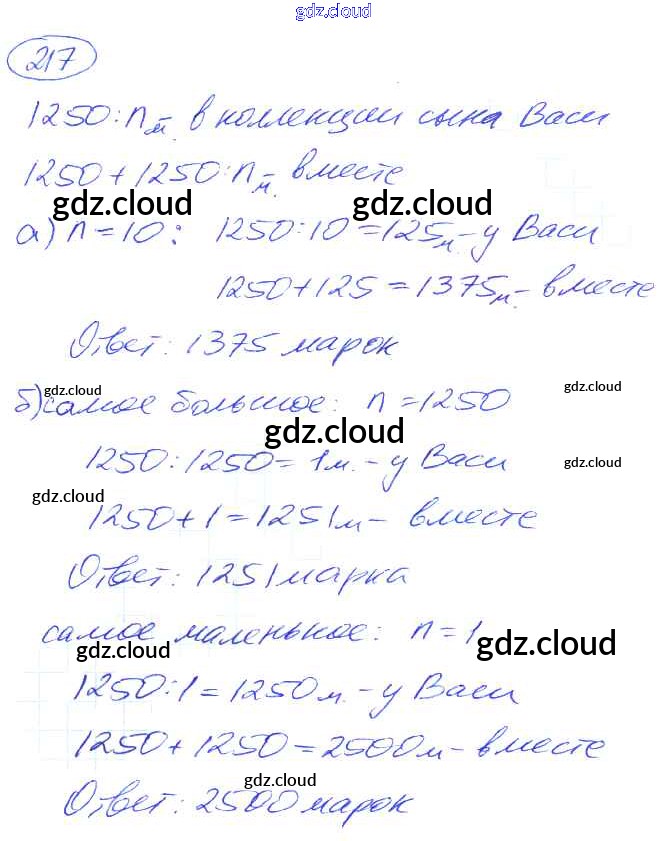 gdz.cloud
217
1250:n м. в коллекции сына Васи
1250+1250:n м. вместе
gdz.cloud gdz.cloud
а) n=10: 1250:10=125м.-у Васи
1250+125=1375м.-вместе
Ответ: 1375 марок
gdz.cloud gdz.cloud
б) самое большое: n=1250
gdz.cloud
1250:1250=1м.-у Васи
gdz.cloud
gdz.cloud
1250+1=1251м- вместе
Ответ: 1251 марка
самое маленькое: n=1
gdz.cloud gdz.cloud
1250:1=1250м.-у Васи
1250+1250=2500м-вместе
gdz.cloud
Ответ: 2500 марок